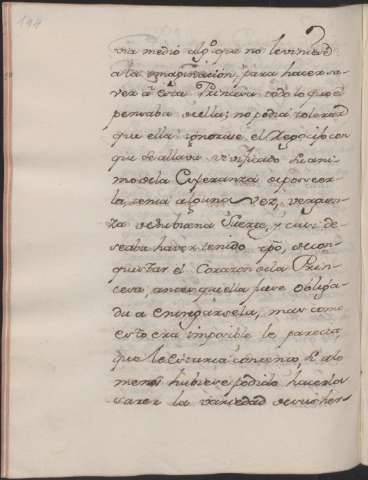 144
via medio algo que no le viniese
a la imaginación, para hacer sa-
ver a esta Princesa todo lo que
pensaba de ella; no podia tolerar
que ella ignorase el Regocijo con
que se allava
la esperanza de poseer-
la, tenia alguna vez, verguen-
za de su buena Suerte, y casi de-
seaba haver tenido tpō, de con-
quistar el Corazon de la Prin-
cesa, antes que ella fuese obliga-
da a entregarsela, mas como
esto era imposible le parecia,
que le estaria contento, si a lo
menos hubiese podido hacerlo
la variedad de sus her-